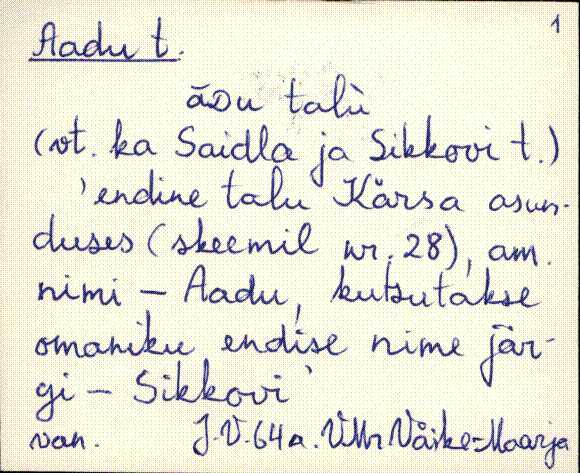 1
Aadu t.
āDu talù
(vt. ka Saidla ja Sikkovi t.)
'endine talu Kärsa asun-
duses (skeemil nr. 28), am.
nimi – Aadu, kutsutakse
omaniku endise nime jär-
gi – Sikkovi'
van. J.V. 64 a. VMr Väike-Maarja